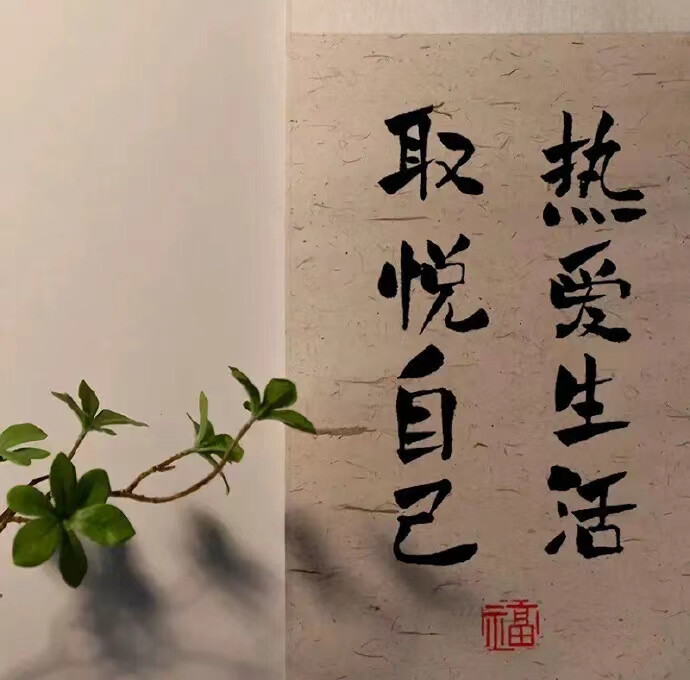 热爱生活
取悦自己
福